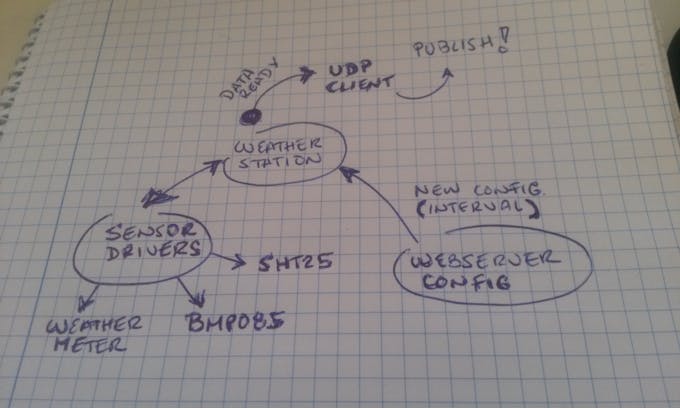 PUBLISH!
DATA
READY
UDP
CLIENT
WEATHER
STATION
NEW CONFIG.
(INTERVAL)
SENSOR
DRIVERS
SHT25
WEBSERVER
CONFIG
WEATHER
METER
BMP085